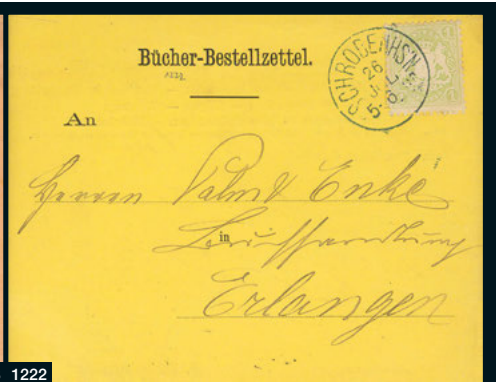 Bücher-Bestellzettel.
SCHROBENHS'N
26
JUL
5-6
An
Herren Palm & Enke
in
Buchhandlung
Erlangen
1222